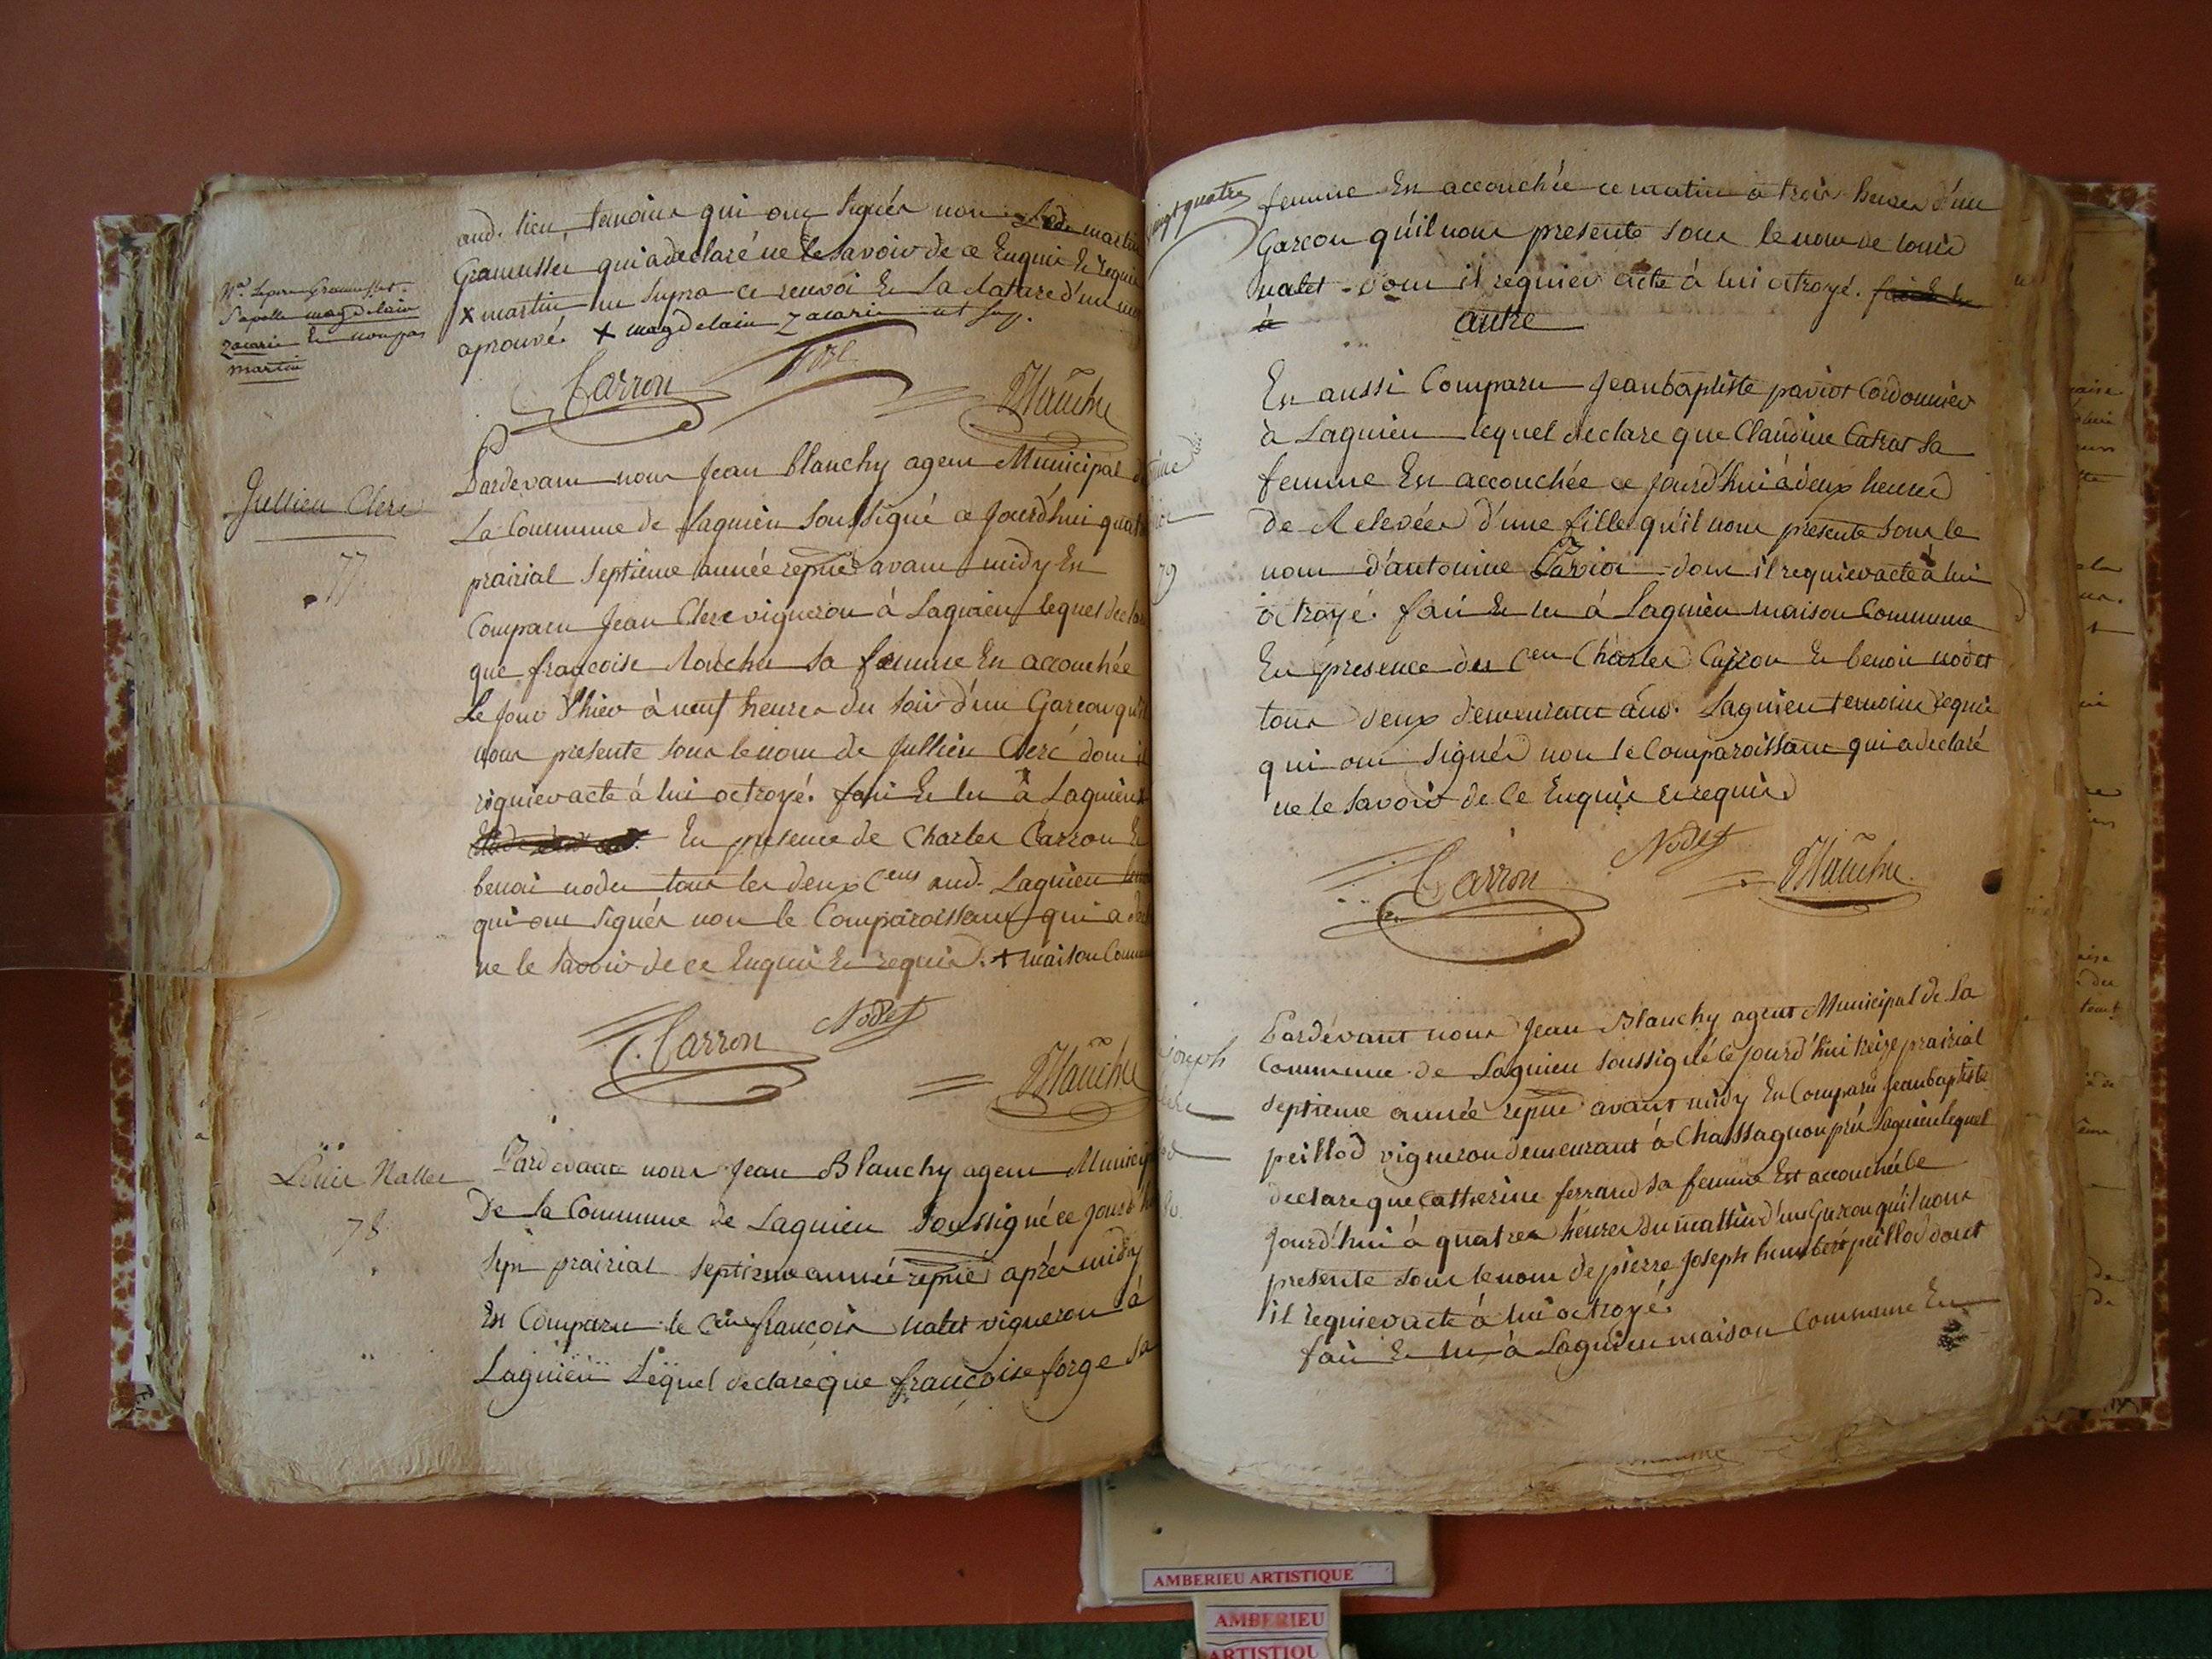 aud. lieu, temoins qui ont signés non
Gramusset qui a declaré ne le savoir de ce Enquis & requis
x martin ut supra ce renvoi & la rature d'un mot
aprouvé. x magdelain zacarie ut sup.
Nª. Le pere Gramusset
s'apelle magdelain
zacarie & non pas
martin
Carron
Blanchy
Jullien Clerc
77.
Pardevant nous Jean blanchy agent Municipal de
La Commune de Lagnieu soussigné ce Jourd'hui quatre
prairial septieme année repue avant midy Est
Comparu Jean Clerc vigneron à Lagnieu lequel declare
que francoise Rouchu sa femme Est accouchée
Le Jour d'hier à neuf heures du soir d'un Garcon qu'il
nous presente sous le nom de Jullien Clerc dont il
requiev acte à lui octroyé. fait & lu à Lagnieu x
En presence de Charles Carron &
benoit nodet tous les deux Cens aud. Lagnieu
qui ont signés non le Comparoissant qui a declaré
ne le savoir de ce Enquis & requis. x maison Commune
C. Carron Nodet
Blanchy
Louis Nallet
78
Pardevant nous Jean Blanchy agent Municipal
De La Commune de Lagnieu soussigné ce Jourd'hui
sept prairial septieme année repue après midy
Est Comparu le Cen françois nalet vigneron à
Lagnieu Lequel declare que françoise forge sa
vingt quatre
femme Est accouchée ce matin à trois heures d'un
Garcon qu'il nous presente sous le nom de louis
nalet dont il requiev acte à lui octroyé. fait & lu
à
autre
Est aussi Comparu Jean baptiste paviot Cordonnier
à Lagnieu lequel declare que Claudine Catrat sa
femme Est accouchée ce Jourd'hui à deux heures
79
De Relevées d'une fille qu'il nous presente sous le
nom d'antoinine Paviot dont il requiev acte à lui
octroyé. fait & lu à Lagnieu maison Commune
En presence des Cen Charles Carron & benoit nodet
tous deux demeurant aud. Lagnieu temoins requis
qui ont signés non le Comparoissant qui a declaré
ne le savoir de Ce Enquis & requis
Carron Nodet Blanchy
Joseph
Pardevant nous Jean Blanchy agent Municipal de La
Commune de Lagnieu soussigné ce Jourd'hui treize prairial
septieme année repue avant midy Est Comparu Jean baptiste
peillod vigneron demeurant à Chassagnon près Lagnieu lequel
declare que Catherine ferrand sa femme Est accouchée ce
Jourd'hui à quatres heures du mattin d'un Garcon qu'il nous
presente sous le nom de pierre Joseph humbert peillod dont
il requiev acte à lui octroyé.
fait & lu à Lagnieu maison Commune En
AMBERIEU ARTISTIQUE
AMBERIEU
ARTISTIQU